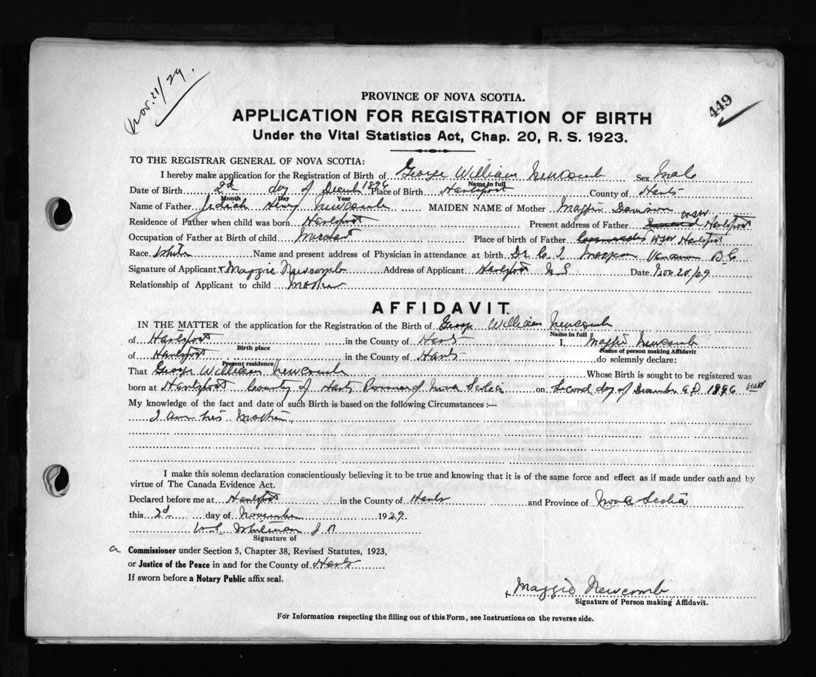 Nov. 21/29.
449
PROVINCE OF NOVA SCOTIA.
APPLICATION FOR REGISTRATION OF BIRTH
Under the Vital Statistics Act, Chap. 20, R. S. 1923.
TO THE REGISTRAR GENERAL OF NOVA SCOTIA:
I hereby make application for the Registration of Birth of George William Newcomb Sex Male
Name in full
Date of Birth 2d day of Place of Birth Hantsport County of Hants
Month Day Year
Name of Father Henry Newcomb MAIDEN NAME of Mother Maggie
Residence of Father when child was born Hantsport Present address of Father Hantsport
Occupation of Father at Birth of child Place of birth of Father Hantsport
Race White Name and present address of Physician in attendance at birth Dr. B.C
Signature of Applicant Maggie Newcomb Address of Applicant Hantsport N S Date
Relationship of Applicant to child Mother
AFFIDAVIT.
IN THE MATTER of the application for the Registration of the Birth of George William Newcomb
Name in full
of Hantsport in the County of Hants I, Maggie Newcomb
Birth place
Name of person making Affidavit
of Hantsport in the County of Hants do solemnly declare:
Present residence
That George William Newcomb Whose Birth is sought to be registered was
born at Hantsport County of Hants Province of Nova Scotia on Second day of December A.D. 1896
My knowledge of the fact and date of such Birth is based on the following Circumstances :—
I am his Mother
I make this solemn declaration conscientiously believing it to be true and knowing that it is of the same force and effect as if made under oath and by
virtue of The Canada Evidence Act.
Declared before me at Hantsport in the County of Hants and Province of Nova Scotia
this 2d day of November 1929
Whitman J P
Signature of
a Commissioner under Section 5, Chapter 38, Revised Statutes, 1923,
or Justice of the Peace in and for the County of Hants
If sworn before a Notary Public affix seal.
Maggie Newcomb
Signature of Person making Affidavit.
For Information respecting the filling out of this Form, see Instructions on the reverse side.